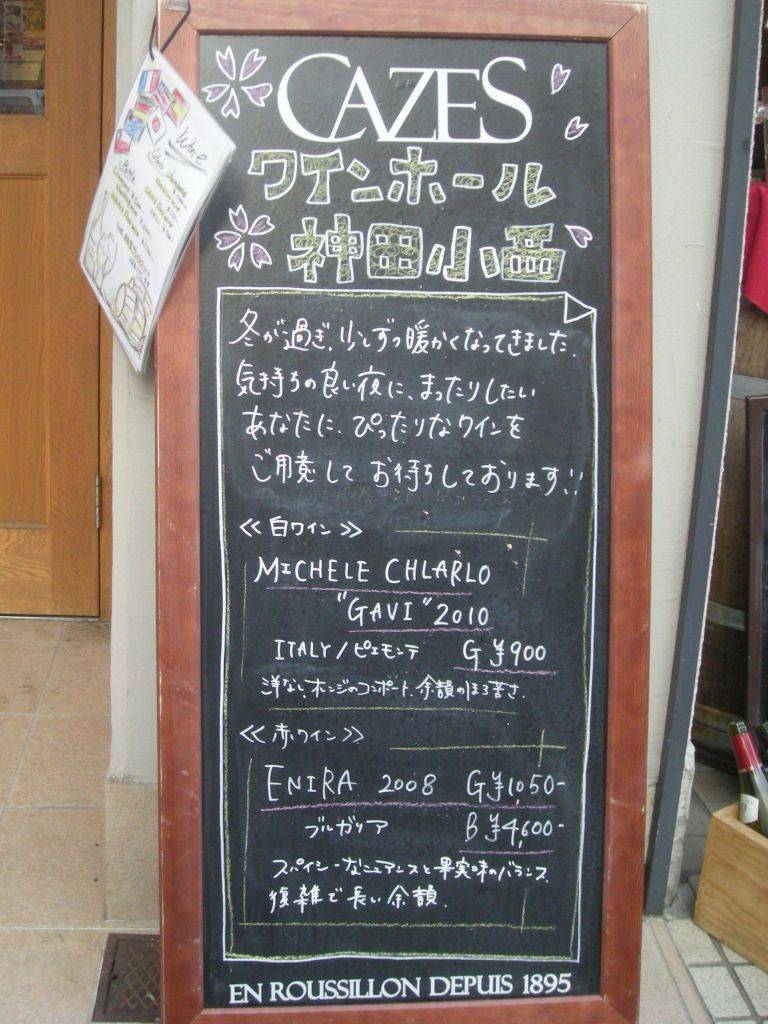 CAZES
ワインホール
神田小西
冬が過ぎ、少しずつ暖かくなってきました。
気持ちの良い夜に、まったりしたい
あなたに、ぴったりなワインを
ご用意して お待ちしております!!
≪白ワイン≫
MICHELE CHLARLO
"GAVI" 2010
ITALY/ピエモンテ G ¥900
洋なし、オレンジのコンポート、余韻のほろ苦さ。
≪赤ワイン≫
ENIRA 2008 G.¥1050-
ブルガリア B ¥4,600-
スパイシーなニュアンスと果実味のバランス
複雑で長い余韻。
EN ROUSSILLON DEPUIS 1895
Wine